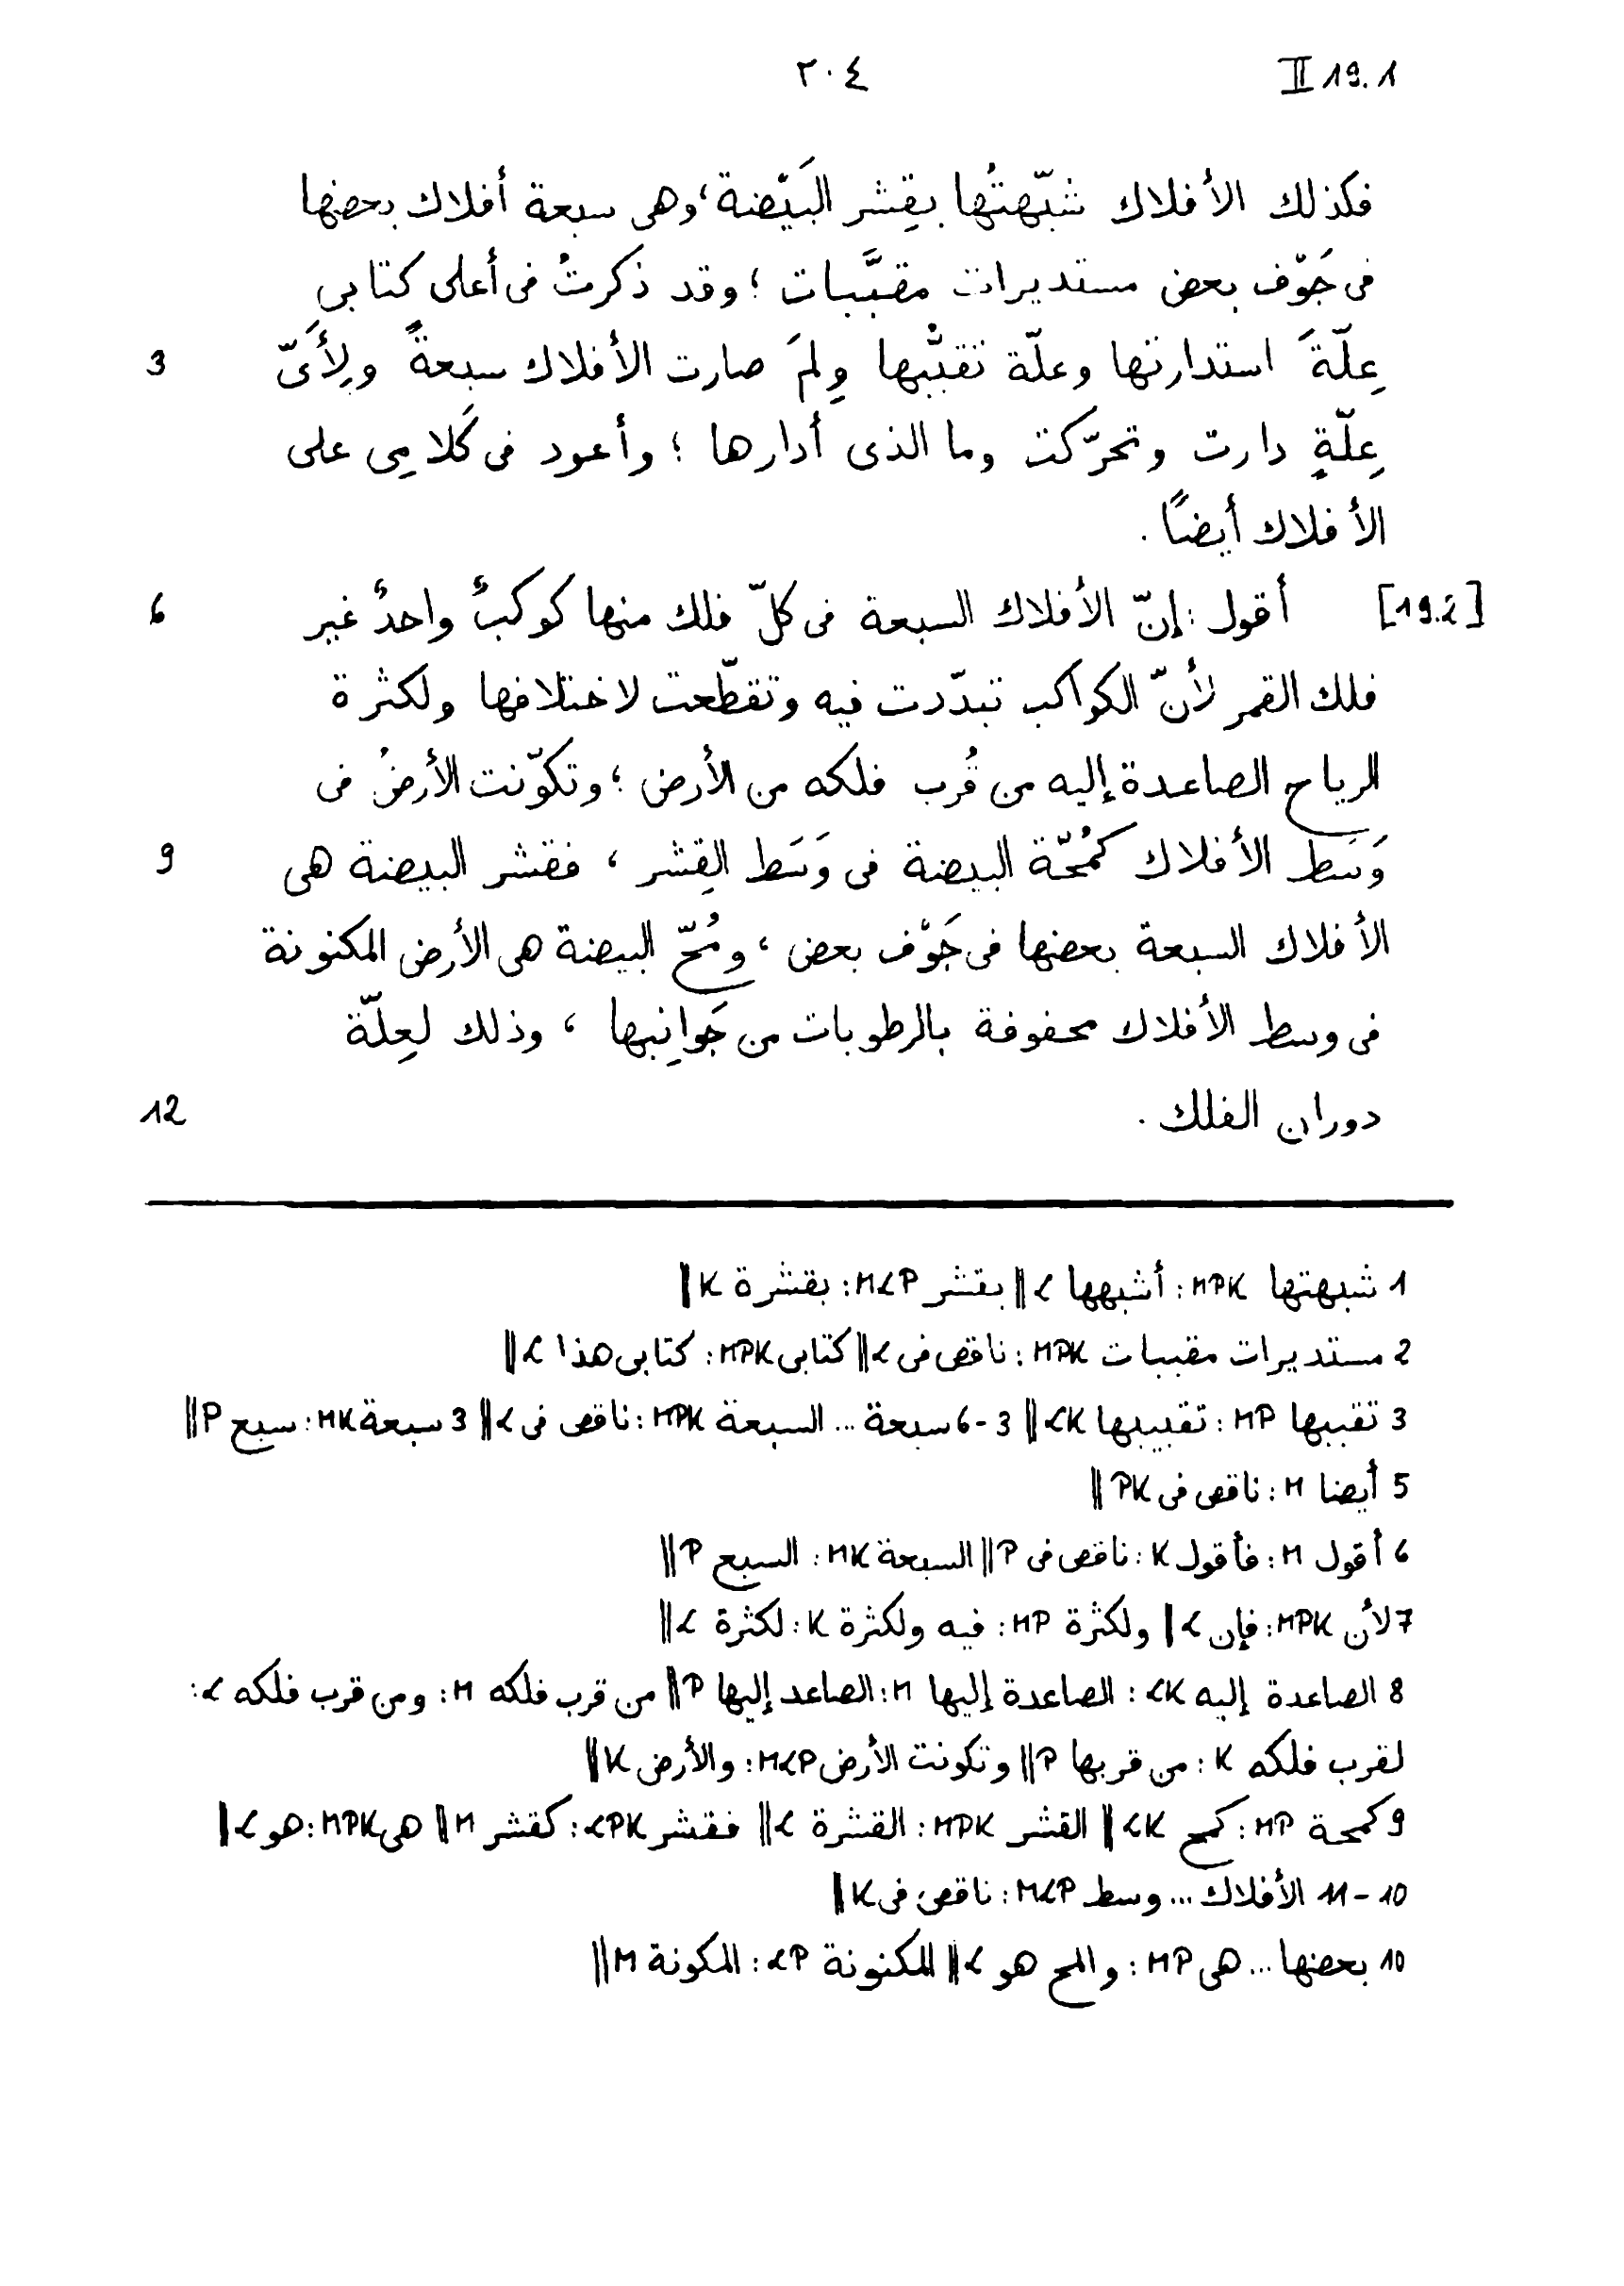 II 19.1 ٣٠٤
فكذلك الأفلاك شبّهتُها بقِشر البَيْضة، وهى سبعة أفلاك بعضها
فى جَوْف بعض مستديرات مقبَّبات ؛ وقد ذكرتُ فى أعلى كتابى
3 عِلّةَ استدارتها وعلّة تقبُّبها ولِمَ صارت الأفلاك سبعةً ولِأَىّ
عِلّةٍ دارت وتحرّكت وما الذى أدارها ؛ وأعود فى كَلامِى على
الأفلاك أيضًا .
6 [19.2] أقول : إنّ الأفلاك السبعة فى كلّ فلك منها كوكبٌ واحدٌ غير
فلك القمر لأنّ الكواكب تبدّدت فيه وتقطّعت لاختلافها ولكثرة
الرياح الصاعدة إليه من قُرب فلكه من الأرض ؛ وتكوّنت الأرضُ فى
9 وَسَط الأفلاك كمُحّة البيضة فى وَسَط القِشر ، فقشر البيضة هى
الأفلاك السبعة بعضها فى جَوْف بعض ، ومُحّ البيضة هى الأرض المكنونة
فى وسط الأفلاك محفوفة بالرطوبات من جَوانِبها ، وذلك لعِلّة
12 دوران الفلك .
1 شبهتها MPK : أشبهها L || بقشر MLP : بقشرة K ||
2 مستديرات مقببات MPK : ناقص فى L || كتابى MPK : كتابى هذا L ||
3 تقببها MP : تقبيبها LK || 3-6 سبعة ... السبعة MPK : ناقص فى L || 3 سبعة MK : سبع P ||
5 أيضا M : ناقص فى PK ||
6 أقول M : فأقول K : ناقص فى P || السبعة MK : السبع P ||
7 لأن MPK : فإن L || ولكثرة MP : فيه ولكثرة K : لكثرة L ||
8 الصاعدة إليه LK : الصاعدة إليها M : الصاعد إليها P || من قرب فلكه M : ومن قرب فلكه L :
لقرب فلكه K : من قربها P || وتكونت الأرض MLP : والأرض K ||
9 كمحة MP : كمح LK || القشر MPK : القشرة L || فقشر LPK : كقشر M || هى MPK : هو L ||
10-11 الأفلاك ... وسط MLP : ناقص فى K ||
10 بعضها ... هى MP : والمح هو L || المكنونة LP : المكونة M ||